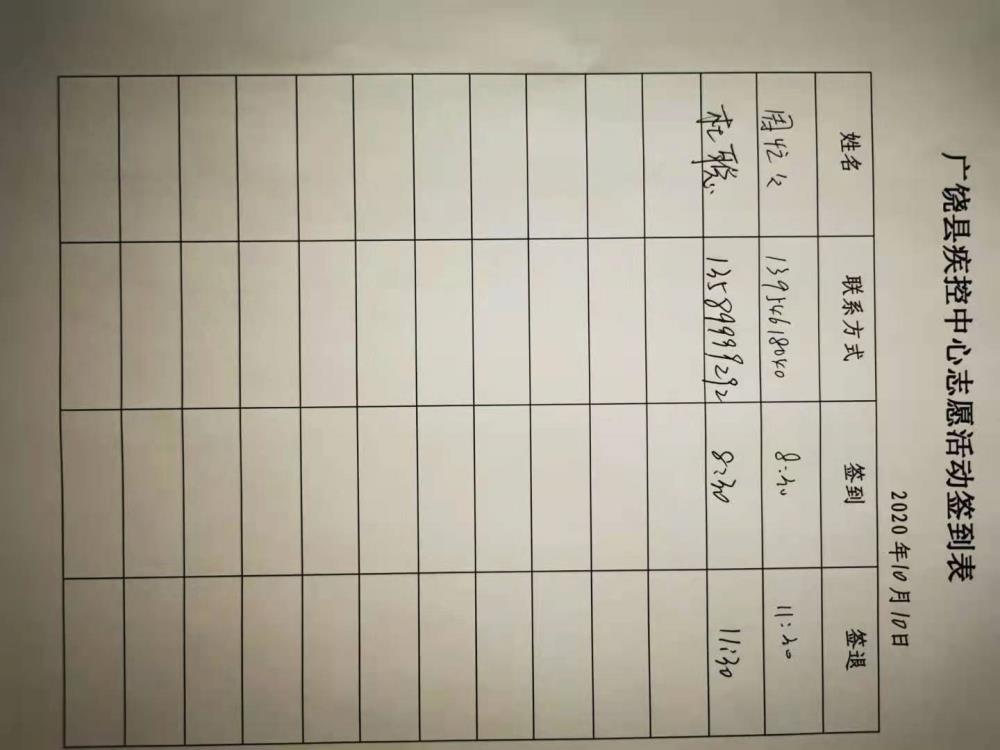 广饶县疾控中心志愿活动签到表
2020年10月10日
姓名 联系方式 签到 签退
周 13954618040 8:30 11:30
杜聪 13589999292 8:30 11:30